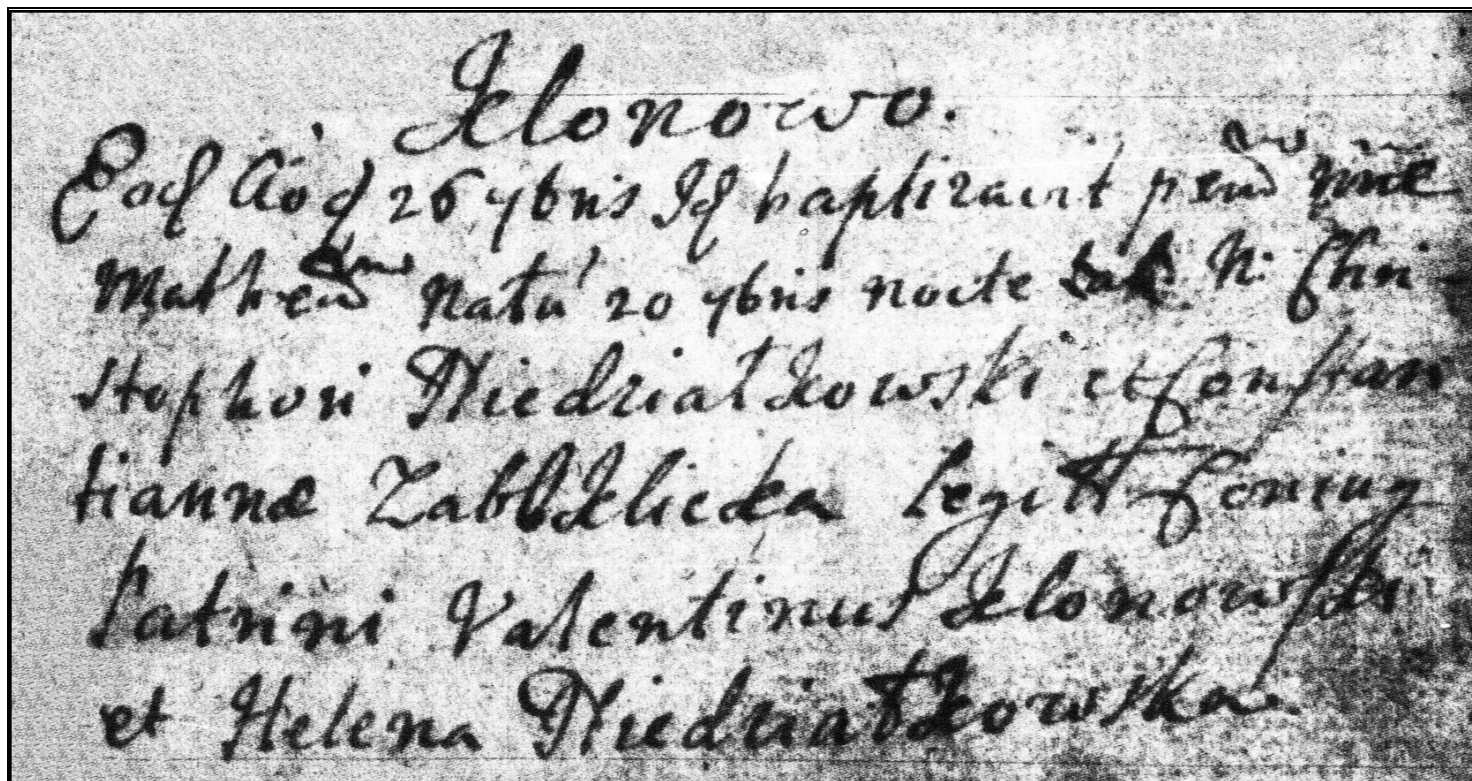 Klonowo.
Eod Aõ d 26 7bris Id baptizavit nõe
Mathe Natũ 20 7bris nocte N. Chri
stophori Niedziałkowski et Constan
tiannæ Zabł Klicka Legitt Coniug
Patrini Valentinus Klonowski
et Helena Niedziałkowska